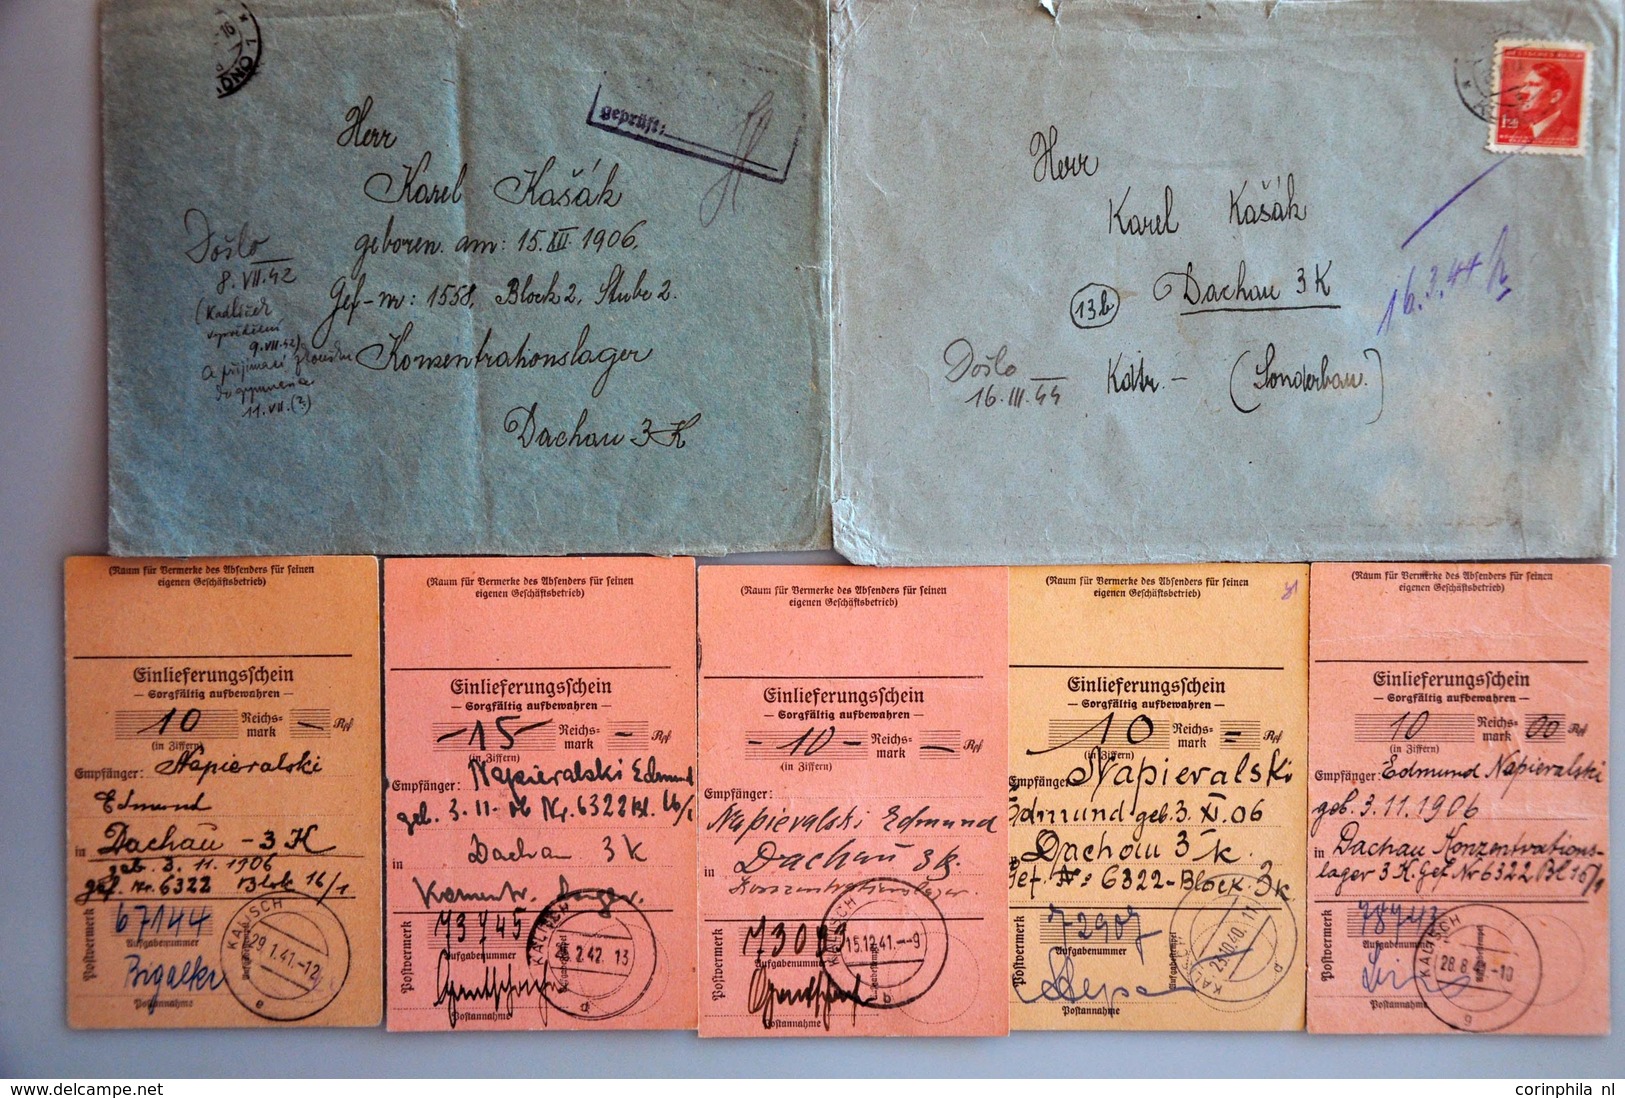 Herr
Karel Kašák
geboren am: 15.XII. 1906.
Gef-nr: 1558, Block 2, Stube 2.
Konzentrationslager
Dachau 3 K
geprüft:
Došlo
8.VII.42
9.VII.42)
11.VII.(?)
Herr
Karel Kašák
Dachau 3 K
13b
(Sonderbau.)
Došlo
16.III.44
16.3.44
(Raum für Vermerke des Absenders für seinen
eigenen Geschäftsbetrieb)
Einlieferungsschein
— Sorgfältig aufbewahren —
10 Reichs-
mark — Rpf
(in Ziffern)
Empfänger: Napieralski
Edmund
in Dachau - 3 K
geb. 3. 11. 1906
gef. Nr. 6322 Blok 16/1
Postvermerk
67144
Aufgabenummer
Postannahme
KALISCH
29.1.41.-12
e
(Raum für Vermerke des Absenders für seinen
eigenen Geschäftsbetrieb)
Einlieferungsschein
— Sorgfältig aufbewahren —
-15- Reichs-
mark — Rpf
(in Ziffern)
Empfänger: Napieralski Edmund
geb. 3.11-06 Nr. 6322 Bl. 16/1
in Dachau 3 K
Postvermerk
73745
Aufgabenummer
Postannahme
KALISCH
2.42. 13
(Raum für Vermerke des Absenders für seinen
eigenen Geschäftsbetrieb)
Einlieferungsschein
— Sorgfältig aufbewahren —
-10- Reichs-
mark — Rpf
(in Ziffern)
Empfänger:
Napieralski Edmund
in Dachau 3K.
Konzentrationslager.
Postvermerk
Aufgabenummer
Postannahme
KALISCH
15.12.41.-9
b
(Raum für Vermerke des Absenders für seinen
eigenen Geschäftsbetrieb)
Einlieferungsschein
— Sorgfältig aufbewahren —
10 Reichs-
mark = Rpf
(in Ziffern)
Empfänger: Napieralski
Edmund geb. 3. XI. 06
Dachau 3 K.
Gef. Nr: 6322-Block. 3K
Postvermerk
72907
Aufgabenummer
Postannahme
KALISCH
(Raum für Vermerke des Absenders für seinen
eigenen Geschäftsbetrieb)
Einlieferungsschein
— Sorgfältig aufbewahren —
10 Reichs-
mark 00 Rpf
(in Ziffern)
Empfänger: Edmund Napieralski
geb. 3.11.1906
in Dachau Konzentrations-
lager 3 K. Gef Nr 6322 Bl 16/1
Postvermerk
Aufgabenummer
Postannahme
KALISCH
corinphila nl